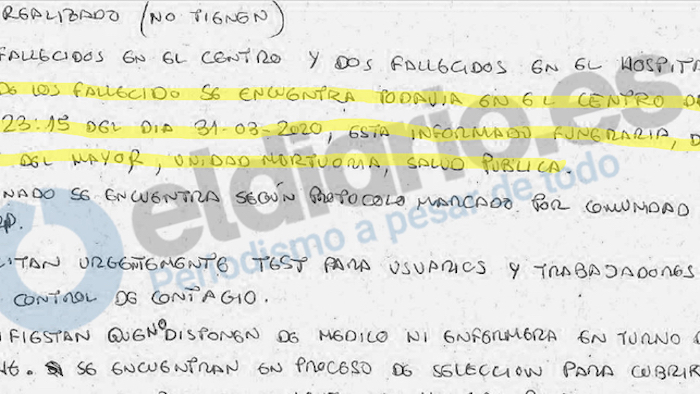 REALIZADO (NO TIENEN)
FALLECIDOS EN EL CENTRO Y DOS FALLECIDOS EN EL HOSPITA
DE LOS FALLECIDO SE ENCUENTRA TODAVIA EN EL CENTRO DE
23:15 DEL DIA 31-03-2020, ESTA INFORMADO FUNERARIA, D
DEL MAYOR, UNIDAD MORTUORIA, SALUD PUBLICA.
NADO SE ENCUENTRA SEGÚN PROTOCOLO MARCADO POR COMUNIDAD
ITAN URGENTEMENTE TEST PARA USUARIOS Y TRABAJADORES
CONTROL DE CONTAGIO.
IFIESTAN QUE NO DISPONEN DE MEDICO NI ENFERMERA EN TURNO D
HE. SE ENCUENTRAN EN PROCESO DE SELECCION PARA CUBRIR
eldiario.es
Periodismo a pesar de todo